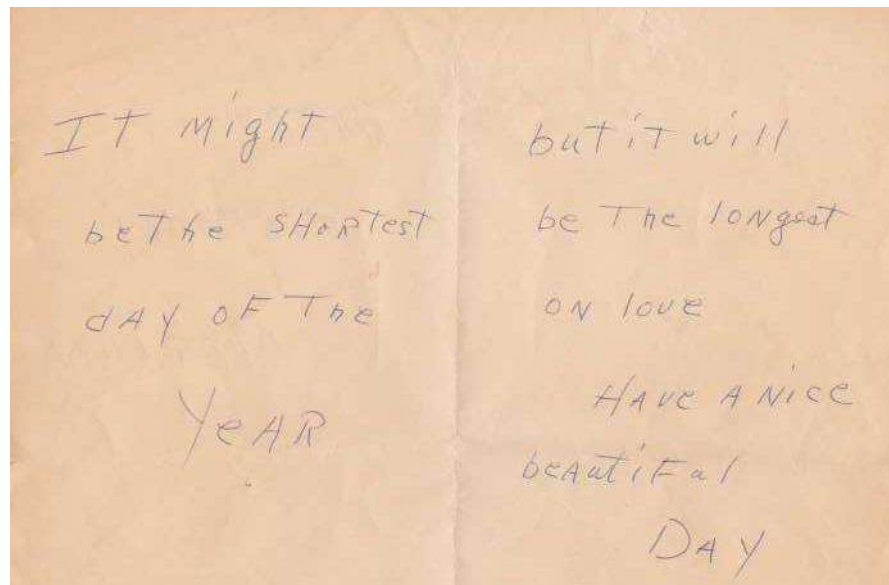 IT Might
be The SHoRTest
dAY oF The
YeAR
but iT will
be The loNgest
oN love
HAve A Nice
beAutiFul
DAY